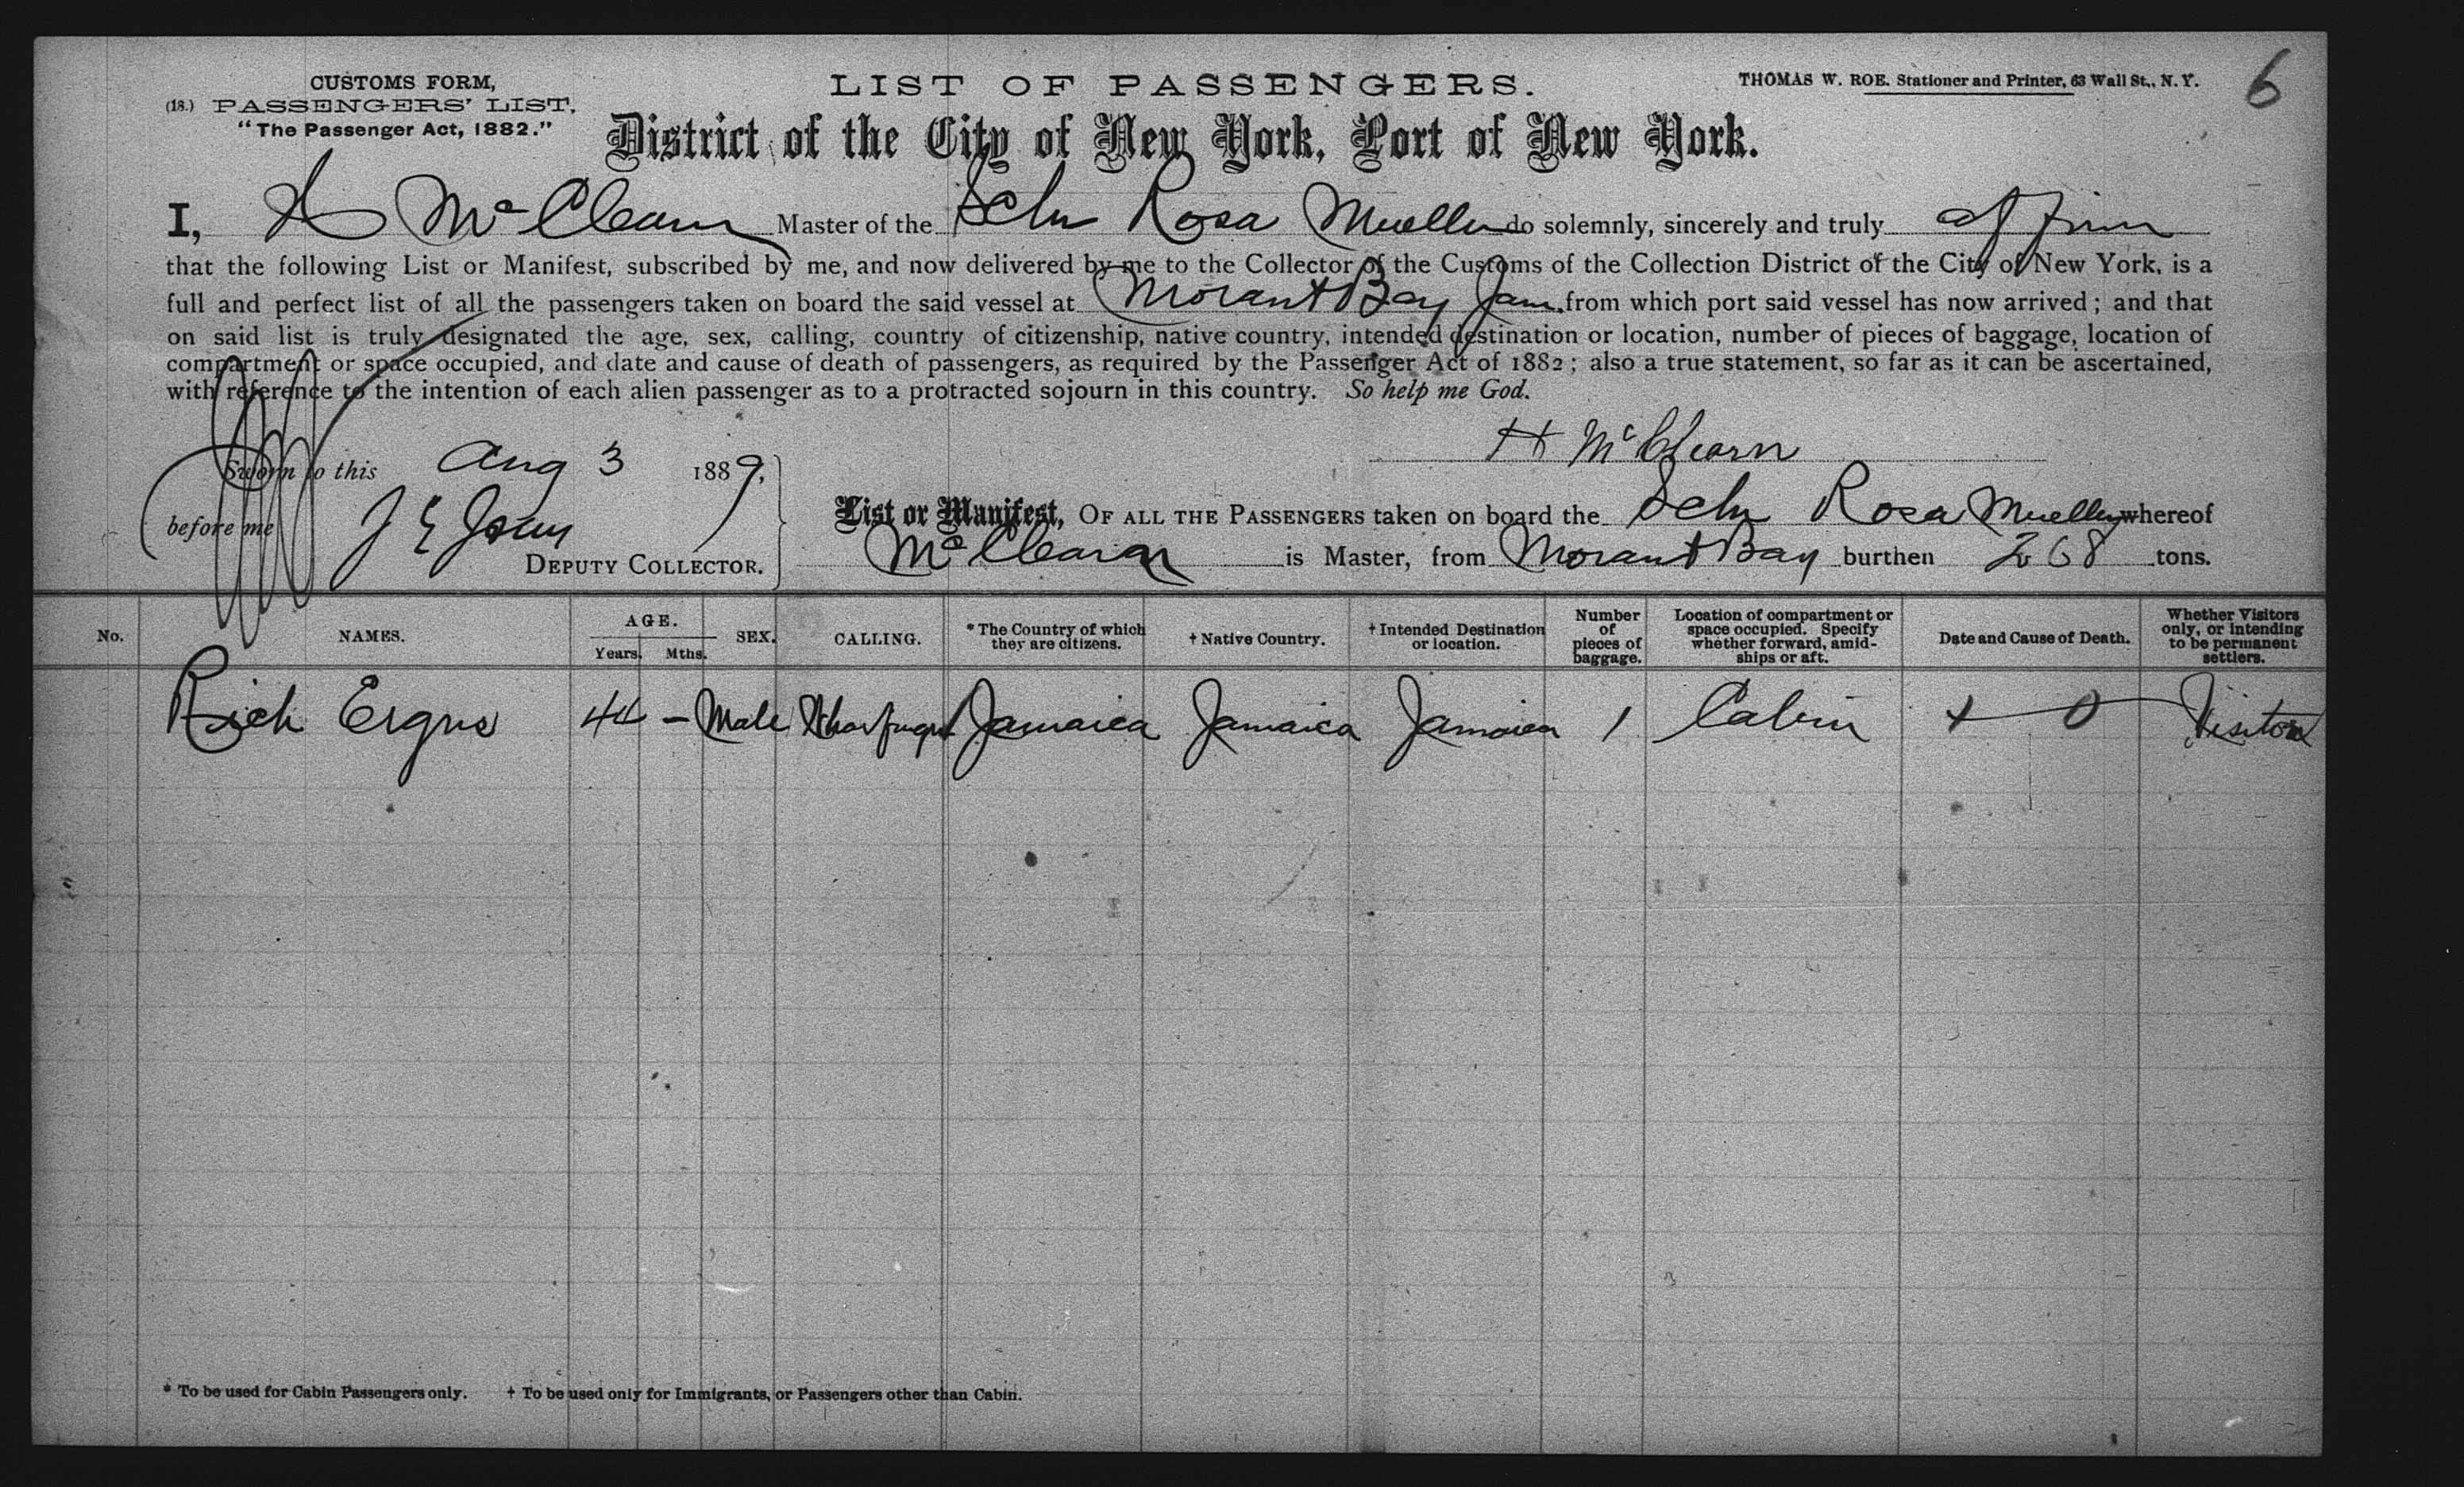 CUSTOMS FORM,
(18.) PASSENGERS' LIST,
"The Passenger Act, 1882."
LIST OF PASSENGERS.
THOMAS W. ROE. Stationer and Printer, 63 Wall St., N. Y.
6
District of the City of New York, Port of New York.
I, H McClearn Master of the Schr Rosa Mueller do solemnly, sincerely and truly affirm
that the following List or Manifest, subscribed by me, and now delivered by me to the Collector of the Customs of the Collection District of the City of New York, is a
full and perfect list of all the passengers taken on board the said vessel at Morant Bay Jam. from which port said vessel has now arrived; and that
on said list is truly designated the age, sex, calling, country of citizenship, native country, intended destination or location, number of pieces of baggage, location of
compartment or space occupied, and date and cause of death of passengers, as required by the Passenger Act of 1882; also a true statement, so far as it can be ascertained,
with reference to the intention of each alien passenger as to a protracted sojourn in this country. So help me God.
H McClearn
Sworn to this Aug 3 1889,
before me J E
DEPUTY COLLECTOR.
List or Manifest, OF ALL THE PASSENGERS taken on board the Schr Rosa Mueller whereof
McClearn is Master, from Morant Bay burthen 268 tons.
No. NAMES. AGE. Years. Mths. SEX. CALLING. * The Country of which they are citizens. † Native Country. † Intended Destination or location. Number of pieces of baggage. Location of compartment or space occupied. Specify whether forward, amidships or aft. Date and Cause of Death. Whether Visitors only, or intending to be permanent settlers.
Rich 44 - Male Jamaica Jamaica Jamaica 1 Cabin + 0 Visitor
* To be used for Cabin Passengers only. † To be used only for Immigrants, or Passengers other than Cabin.